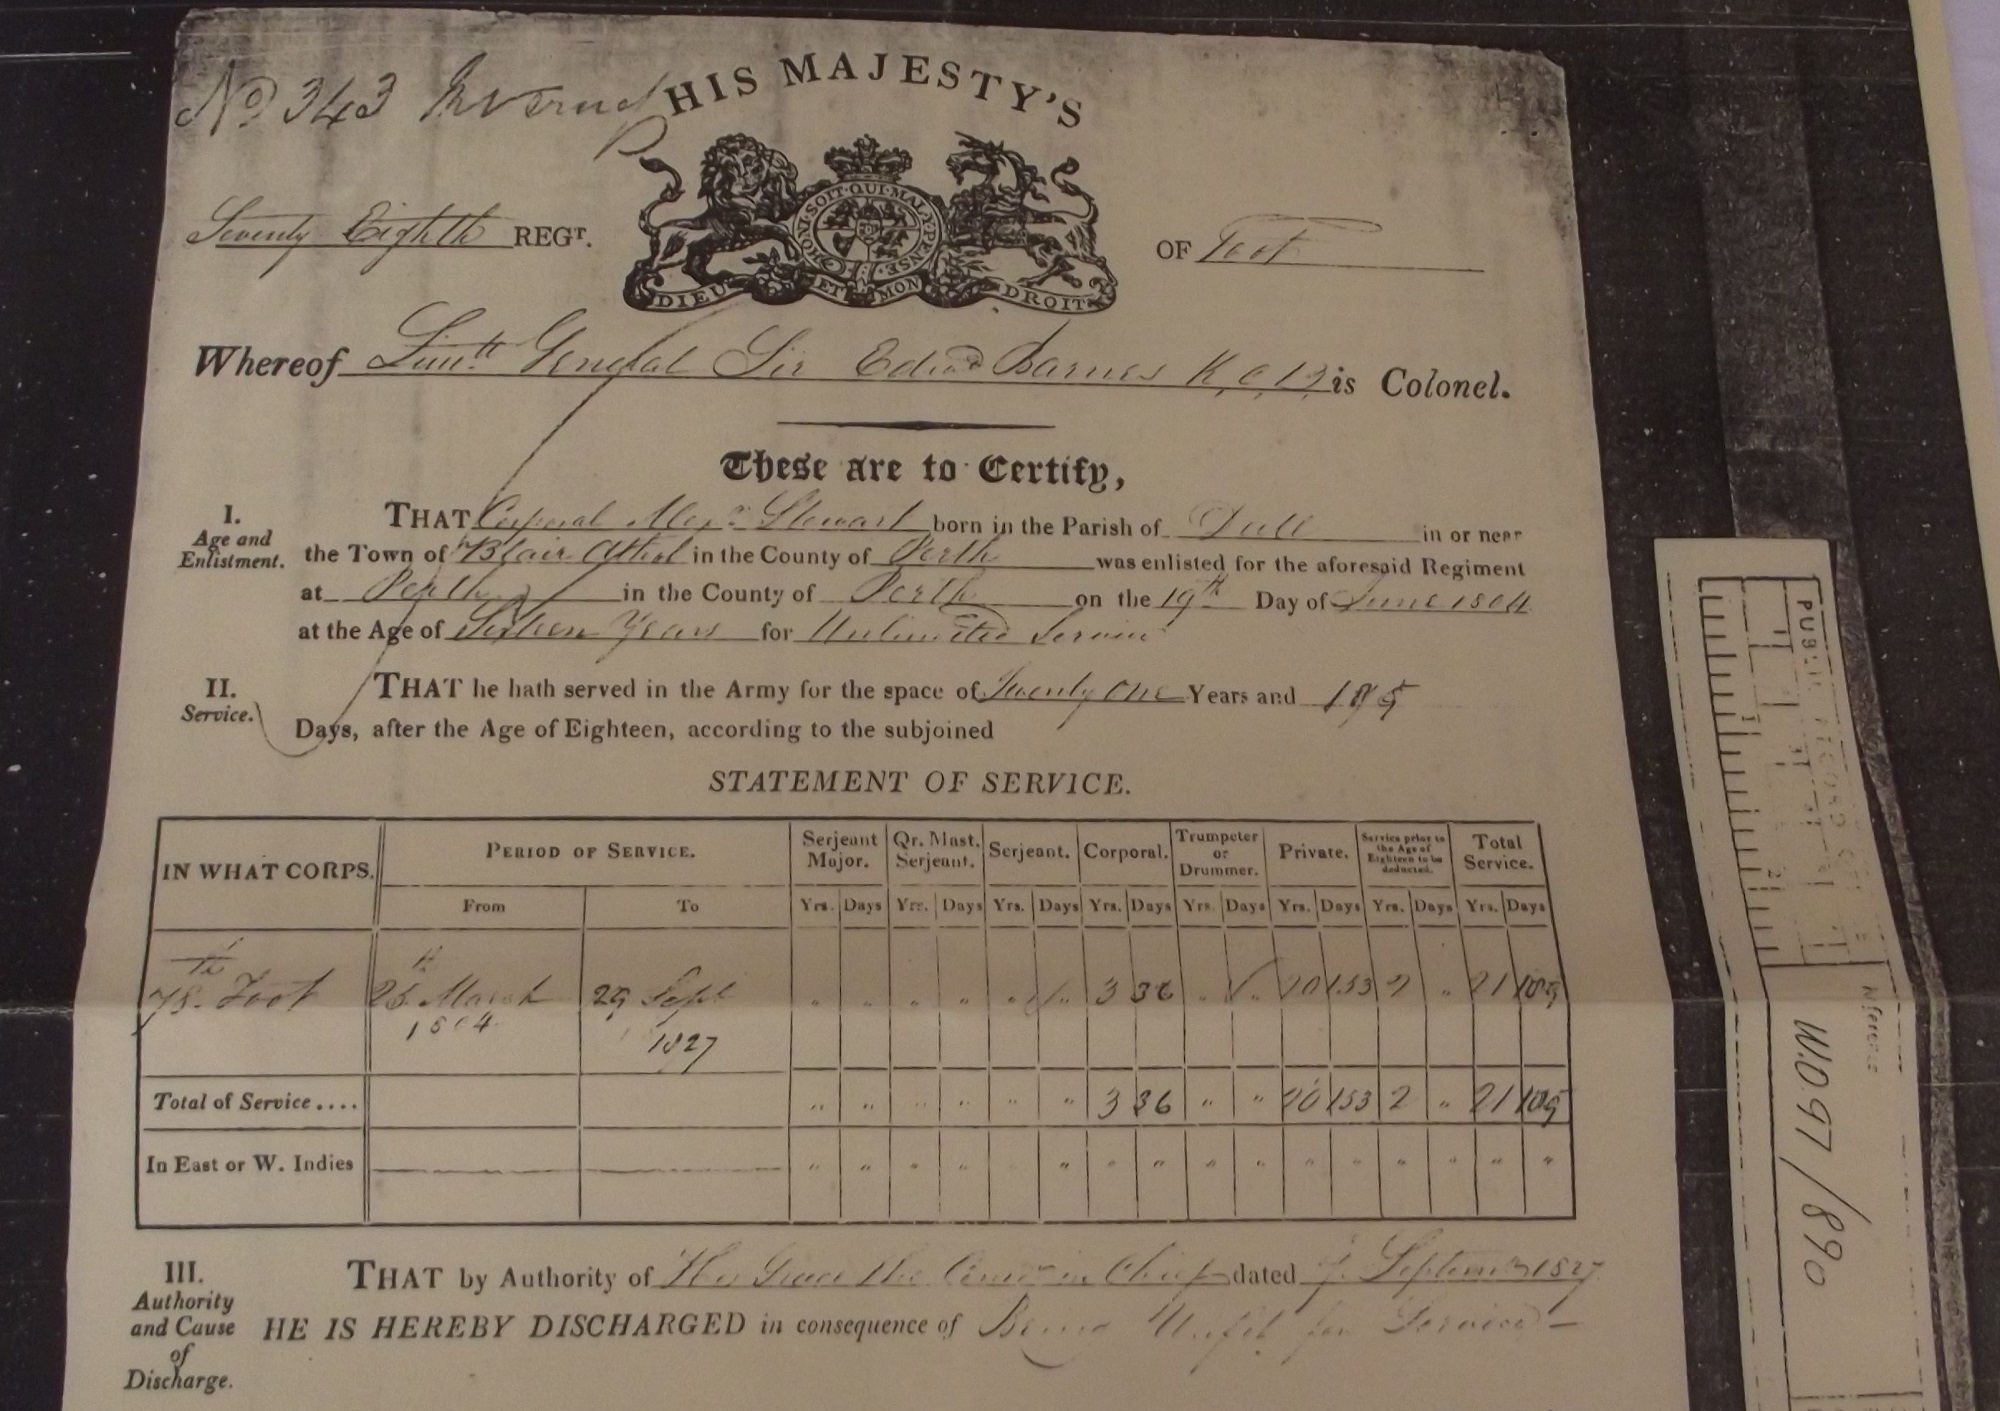 No 343 Inverness
HIS MAJESTY'S
HONI·SOIT·QUI·MAL·Y·PENSE
DIEU ET MON DROIT
Seventy Eighth REGT. OF Foot
Whereof Lieutt. General Sir Edwd Barnes K,C,B, is Colonel.
These are to Certify,
I.
Age and
Enlistment.
THAT Corporal Alexr. Stewart born in the Parish of Dull in or near
the Town of Blair Athol in the County of Perth was enlisted for the aforesaid Regiment
at Perth in the County of Perth on the 19th Day of June 1804
at the Age of Sixteen Years for Unlimited Service
II.
Service.
THAT he hath served in the Army for the space of Twenty One Years and 189
Days, after the Age of Eighteen, according to the subjoined
STATEMENT OF SERVICE.
IN WHAT CORPS. PERIOD OF SERVICE. Serjeant Major. Qr. Mast. Serjeant. Serjeant. Corporal. Trumpeter or Drummer. Private. Service prior to the Age of Eighteen to be deducted. Total Service.
From To Yrs. Days Yrs. Days Yrs. Days Yrs. Days Yrs. Days Yrs. Days Yrs. Days Yrs. Days
78th Foot 25th March 1804 29 Sept 1827 " " " " " " 3 36 " " 20 153 2 " 21 189
Total of Service.... " " " " " " 3 36 " " 20 153 2 " 21 189
In East or W. Indies " " " " " " " " " " " " " " " "
III.
Authority
and Cause
of
Discharge.
THAT by Authority of His Grace the Comr in Chief dated 7. Septemr 1827
HE IS HEREBY DISCHARGED in consequence of Being Unfit for Service
PUBLIC RECORD OFFICE
1 2
Reference
W.O 97 / 890